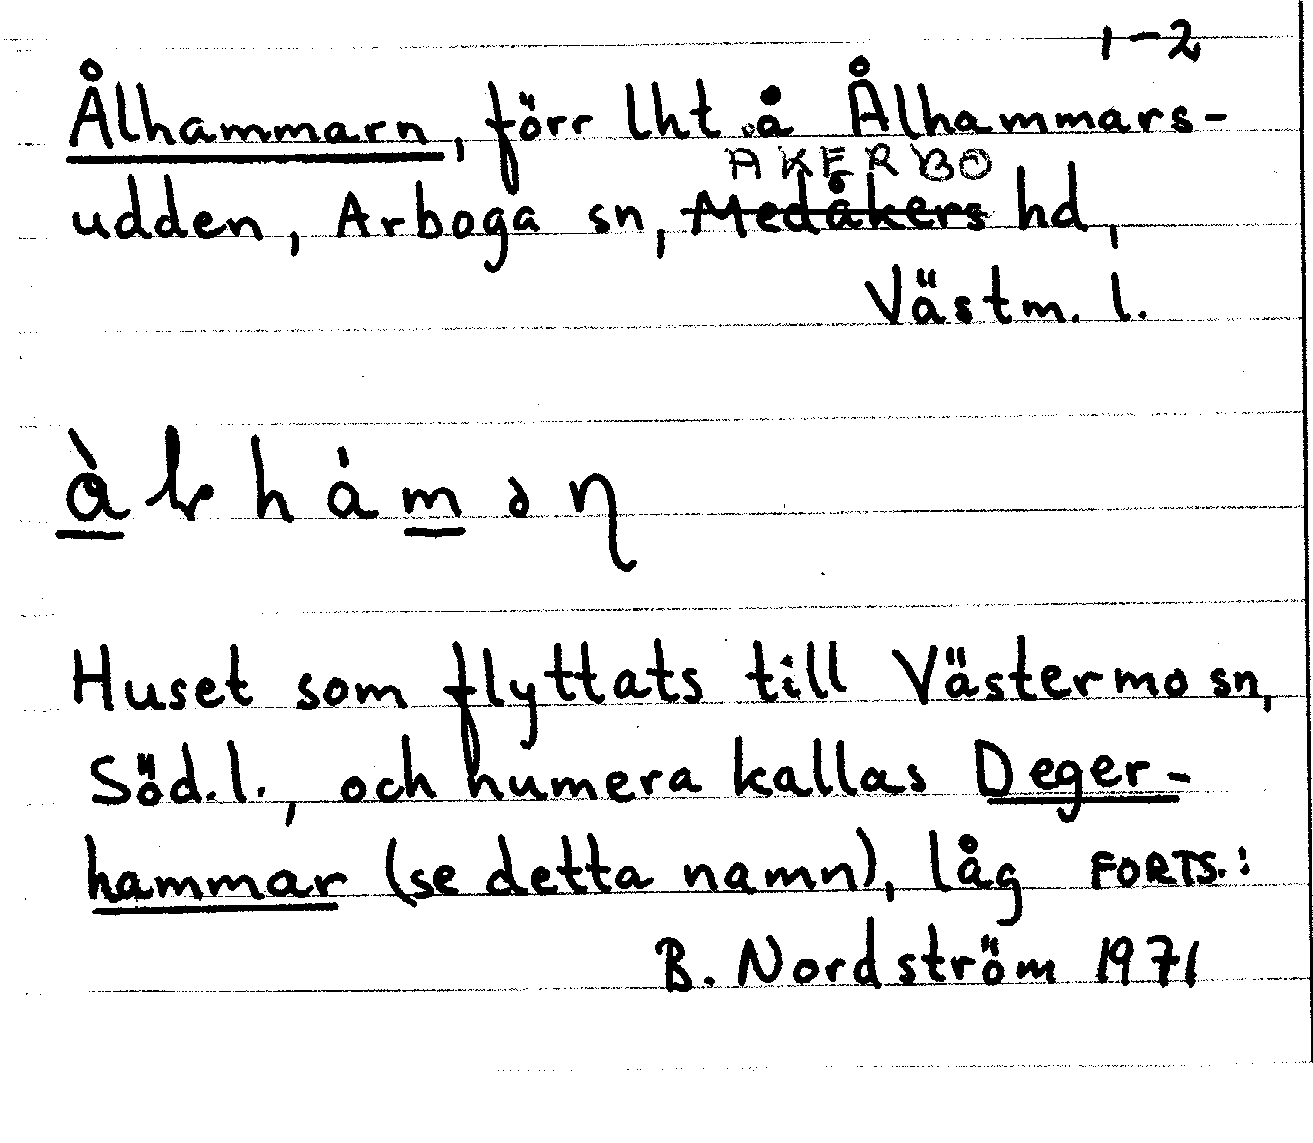 1-2
Ålhammarn, förr lht å Ålhammars-
AKERBO
udden, Arboga sn, Medåkers hd,
Västm. l.
Huset som flyttats till Västermo sn,
Söd.l., och numera kallas Deger-
hammar (se detta namn), låg FORTS.:
B. Nordström 1971